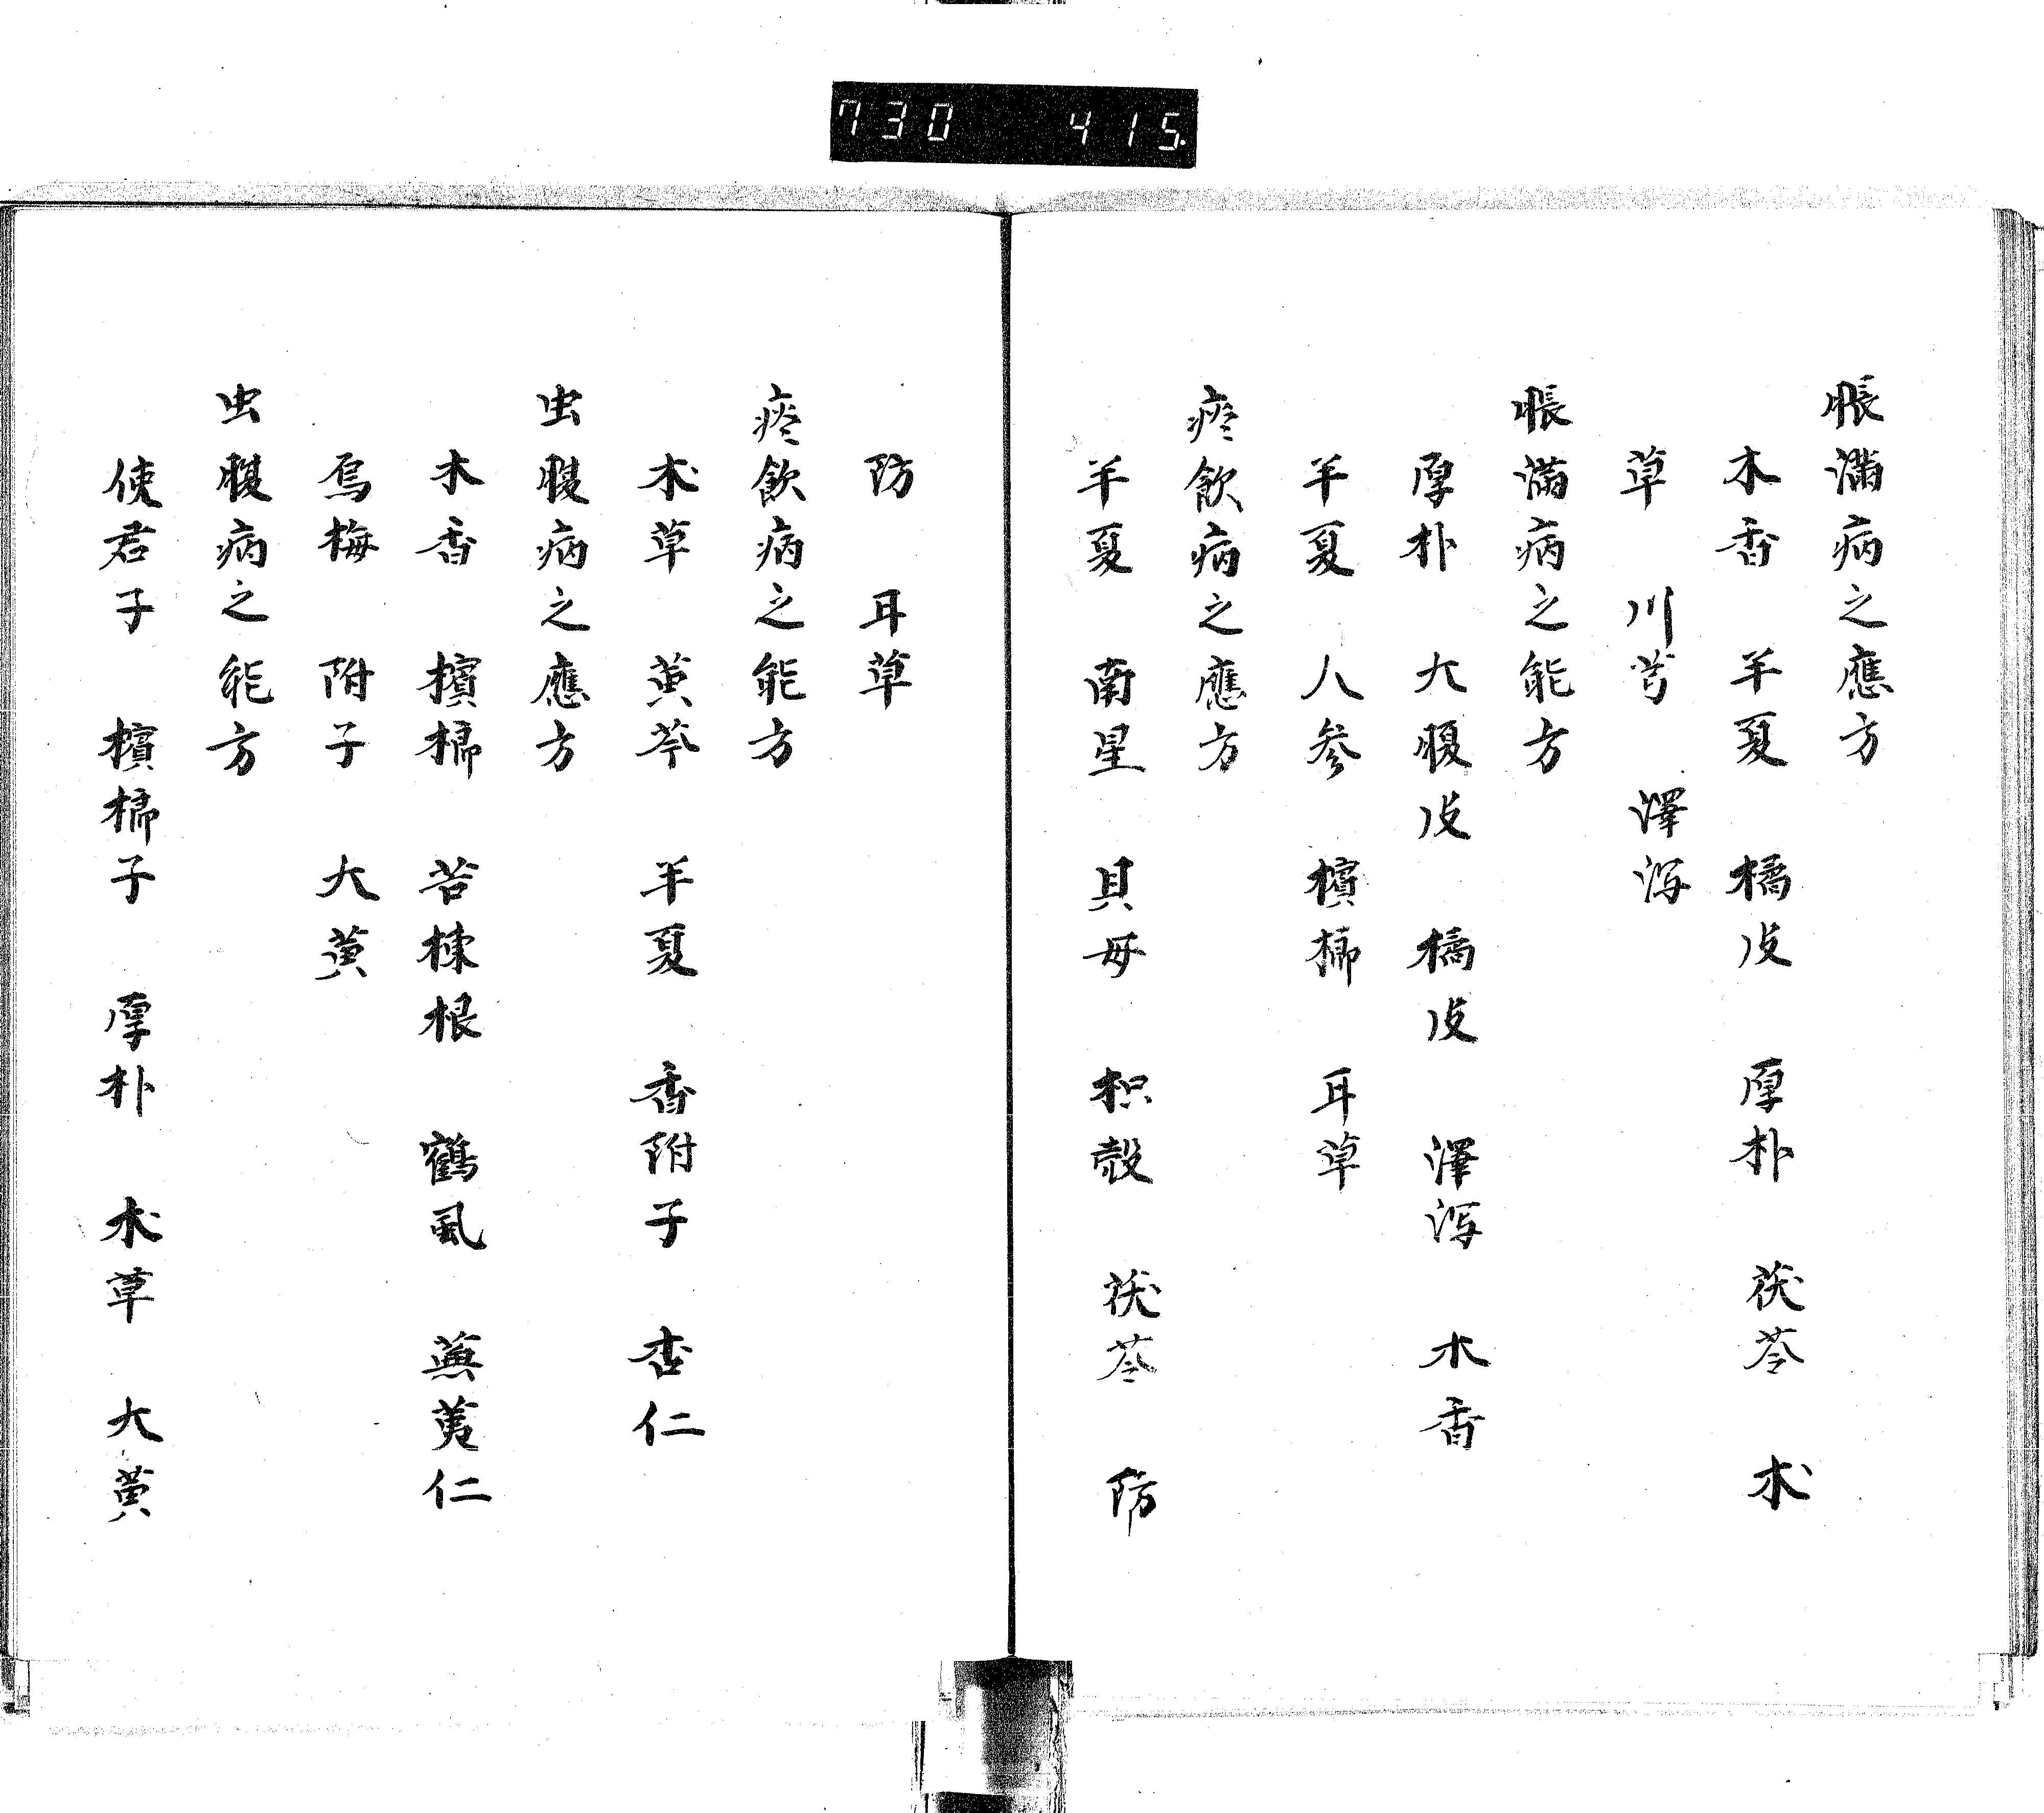 730 415
脹滿病之應方
木香 半夏 橘皮 厚朴 茯苓 朮
草 川芎 澤泻
脹滿病之能方
厚朴 大腹皮 橘皮 澤泻 木香
半夏 人参 檳榔 耳草
痰飲病之應方
半夏 南星 貝母 枳殻 茯苓 防
防 耳草
痰飲病之能方
朮草 黄芩 半夏 香附子 杏仁
虫腹病之應方
木香 檳榔 苦楝根 鶴虱 蕪荑仁
烏梅 附子 大黄
虫腹病之能方
使君子 檳榔子 厚朴 朮草 大黄